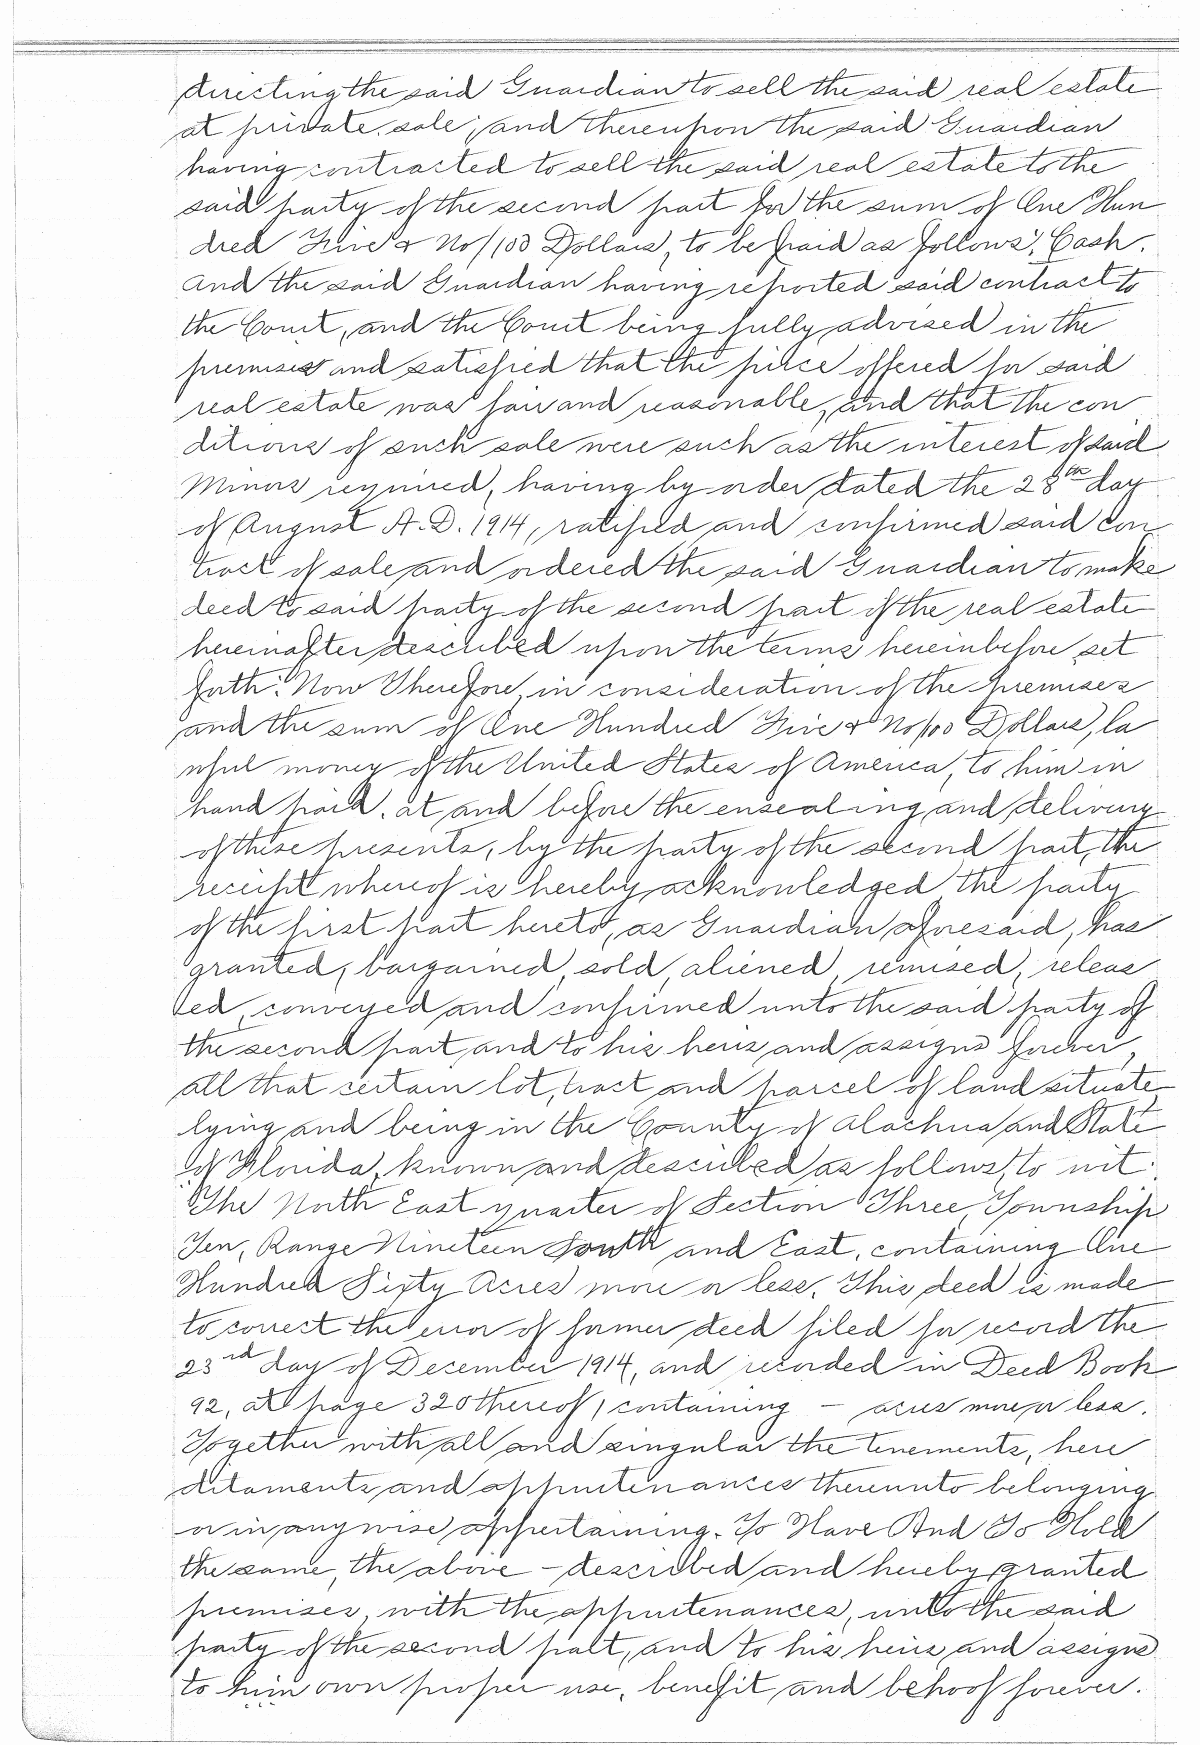 directing the said Guardian to sell the said real estate
at private sale; and thereupon the said Guardian
having contracted to sell the said real estate to the
said party of the second part for the sum of One Hun
dred Five & No/100 Dollars, to be paid as follows; Cash.
And the said Guardian having reported said contract to
the Court, and the Court being fully advised in the
premises and satisfied that the price offered for said
real estate was fair and reasonable, and that the con
ditions of such sale were such as the interest of said
Minors required, having by order dated the 28th day
of August A.D. 1914, ratified and confirmed said con
tract of sale and ordered the said Guardian to make
deed to said party of the second part of the real estate
hereinafter described upon the terms hereinbefore set
forth: Now Therefore, in consideration of the premises
and the sum of One Hundred Five & No/100 Dollars, la
wful money of the United States of America, to him in
hand paid, at and before the ensealing and delivery
of these presents, by the party of the second part, the
receipt whereof is hereby acknowledged, the party
of the first part hereto, as Guardian aforesaid, has
granted, bargained, sold, aliened, remised, releas
ed, conveyed and confirmed unto the said party of
the second part, and to his heirs and assigns forever,
all that certain lot, tract and parcel of land situate
lying and being in the County of Alachua and State
of Florida, known and described as follows, to wit:
The North East quarter of Section Three, Township
Ten, Range Nineteen South and East, containing One
Hundred Sixty Acres more or less. This deed is made
to correct the error of former deed filed for record the
23rd day of December 1914, and recorded in Deed Book
92, at page 320 thereof, containing — acres more or less.
Together with all and singular the tenements, here
ditaments and appurtenances thereunto belonging
or in anywise appertaining. To Have And To Hold
the same, the above - described and hereby granted
premises, with the appurtenances, unto the said
party of the second palt, and to his heirs and assigns
to him own proper use, benefit and behoof forever.